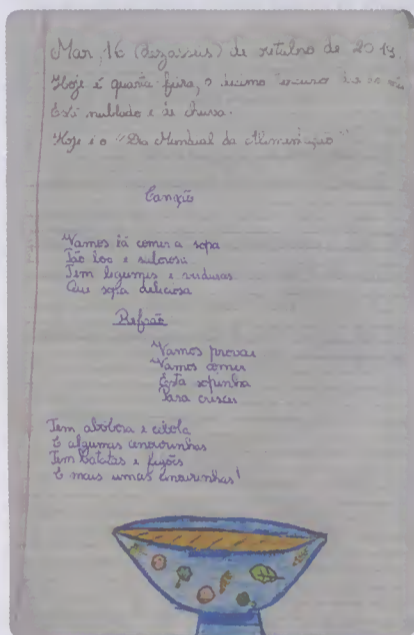 Mar, 16 (dezasseis) de outubro de 2019
Hoje é quarta feira, o
Está nublado e de chuva.
Hoje é o "Dia Mundial da Alimentação"
Canção
Vamos lá comer a sopa
Tão boa e saborosa
Tem legumes e verduras
Que sopa deliciosa
Refrão
Vamos provar
Vamos comer
Esta sopinha
Para crescer
Tem abóbora e cebola
E algumas cenourinhas
Tem batatas e feijões
E mais umas cenourinhas!